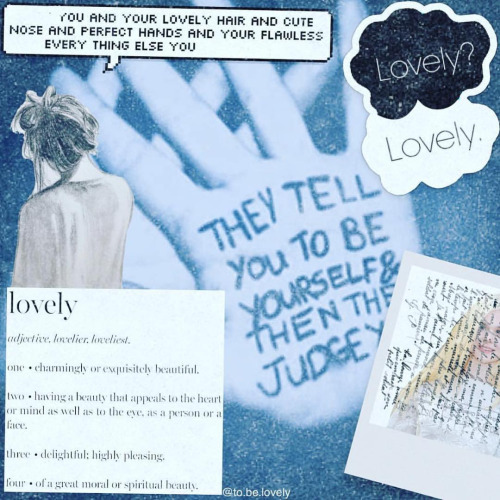 YOU AND YOUR LOVELY HAIR AND CUTE
NOSE AND PERFECT HANDS AND YOUR FLAWLESS
EVERY THING ELSE YOU
Lovely?
Lovely.
THEY TELL
YOU TO BE
YOURSELF &
THEN THE
JUDGE Y
lovely
adjective, lovelier, loveliest.
one • charmingly or exquisitely beautiful.
two • having a beauty that appeals to the heart
or mind as well as to the eye, as a person or a
face.
three • delightful; highly pleasing.
four • of a great moral or spiritual beauty.
@to.be.lovely